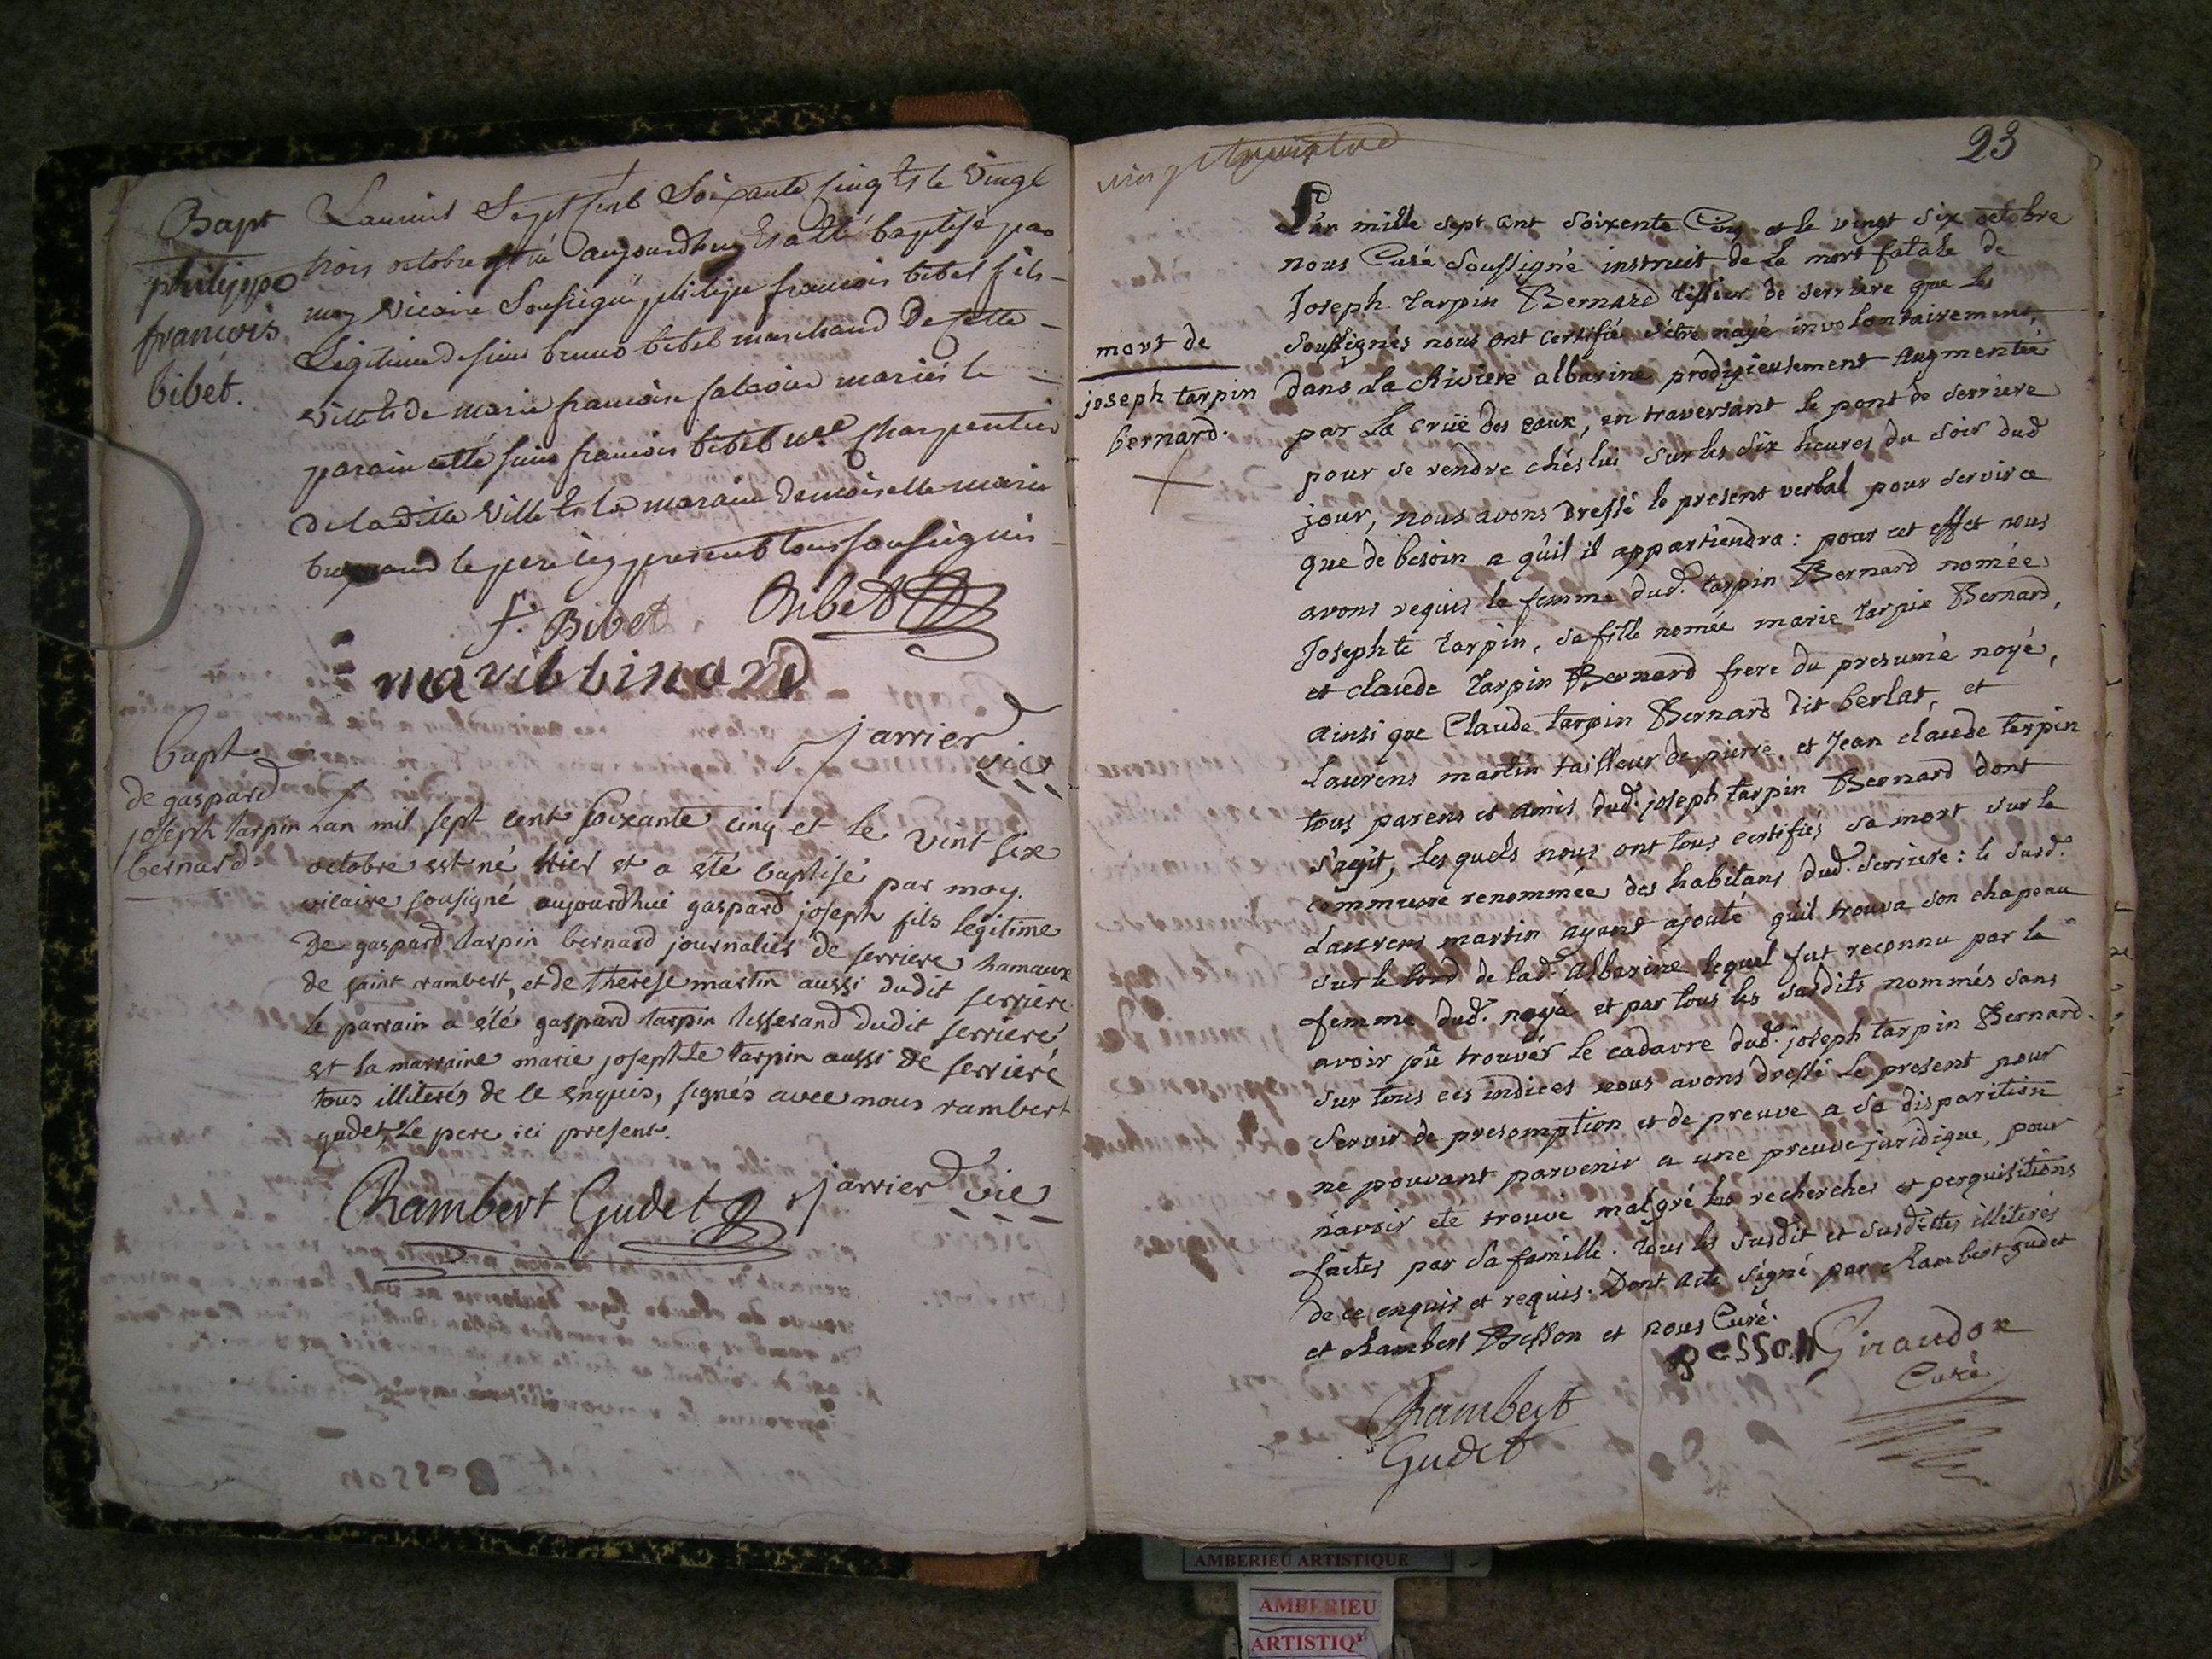 Bapt
philippe
françois
bibét.
Lan mil Sept Cent Soixante Cinq et le Vingt
trois octobre est né aujourdhuy Et a été baptisé par
moy Vicaire Sousigné philipe francois bibet fils
Légitime de sieur bruno bibet marchand de cette
Ville et de marie francoise mariés le
parain a été sieur francois bibet Charpentier
de la ditte Ville et la maraine demoiselle marie
le pere icy present tous sousignés
f. Bibet Bibet
jarrier vic
bapt
de gaspard
joseph tarpin
bernard.
Lan mil sept cent soixante cinq et le vint six
octobre est né hier et a eté baptisé par moy.
vicaire sousigné aujourdhui gaspard joseph fils légitime
De gaspard tarpin bernard journalier de serriere hamaux
de saint rambert, et de therese martin aussi dudit serriere
le parrain a été gaspard tarpin tisserand dudit serriere
et la marraine marie josephte tarpin aussi de serriere
tous illiterés de ce enquis, signés avec nous rambert
gudet, Le pere ici present.
Rambert Gudet jarrier vic
23
mort de
joseph tarpin
bernard.
L'an mille sept cent soixente Cinq et le vingt six octobre
nous Curé Soussigné instruit de la mort fatale de
Joseph tarpin Bernard tissier de serriere que les
soussignés nous ont certifié s'être noyé involontairement,
dans la Riviere albarine prodigieusement Augmentée
par La crüe des eaux, en traversant le pont de serriere
pour se rendre chés lui sur les six heures du soir dud
jour, nous avons dressé le present verbal pour servir a
que de besoin a qu'il il appartiendra : pour cet effet nous
avons requis la femme dud. tarpin Bernard nomée
Josephte tarpin, sa fille nomée marie tarpin Bernard,
et claude tarpin Bernard frere du presumé noyé,
ainsi que Claude tarpin Bernard dit berlat, et
Laurens martin tailleur de pierre et Jean claude tarpin
tous parens et amis dud. joseph tarpin Bernard dont
s'agit, lesquels nous ont tous certifiés sa mort sur la
commune renommée des habitans dud. serriere : le susd.
Laurens martin ayant ajouté qu'il trouva son chapeau
sur le bord de lad. Albarine lequel fut reconnu par la
femme dud. noyé et par tous les susdits nommés sans
avoir pû trouvér le cadavre dud. joseph tarpin Bernard.
sur touts ces indices nous avons dressé Le present pour
servir de presomption et de preuve a sa disparition
ne pouvant parvenir a une preuve juridique, pour
n'avoir eté trouvé malgré les recherches et perquisitions
faites par sa famille. tous les susdit et susdittes illiterés
de ce enquis et requis. Dont acte signé par Rambert gudet
et Rambert Besson et nous Curé.
Besson Giraudon
Curé
Rambert
Gudet
AMBERIEU ARTISTIQUE
AMBERIEU
ARTISTIQ